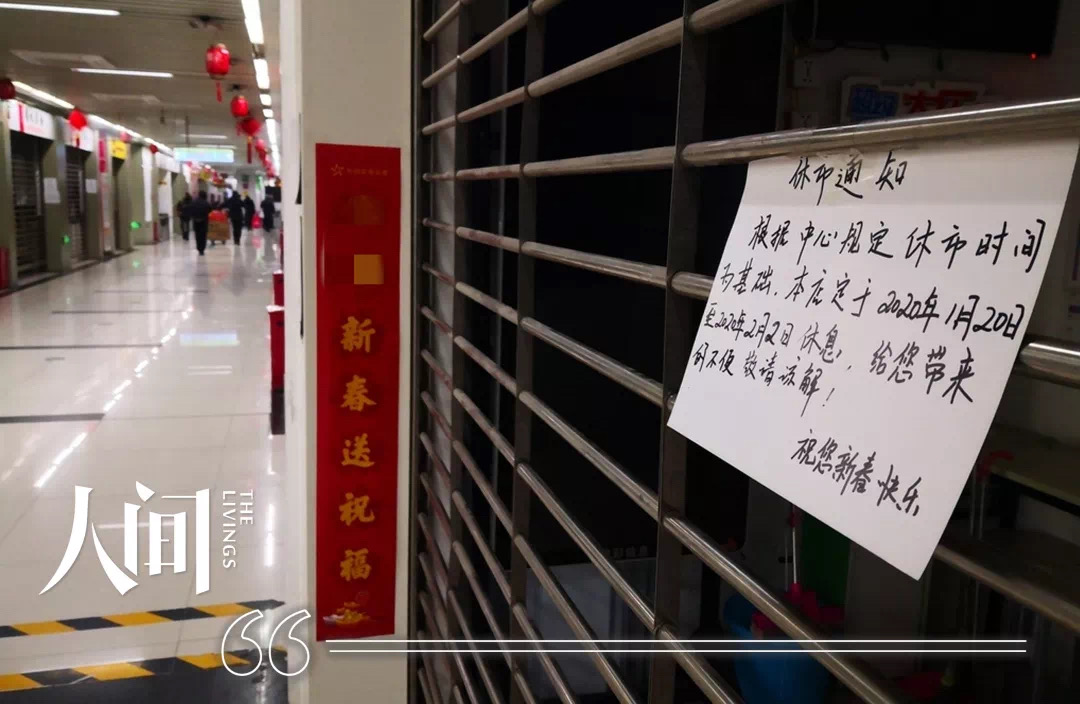 新春送祝福
休市通知
根据中心规定休市时间
为基础,本店定于2020年1月20日
至2020年2月2日休息,给您带来
的不便敬请谅解!
祝您新春快乐
人间
THE
LIVINGS